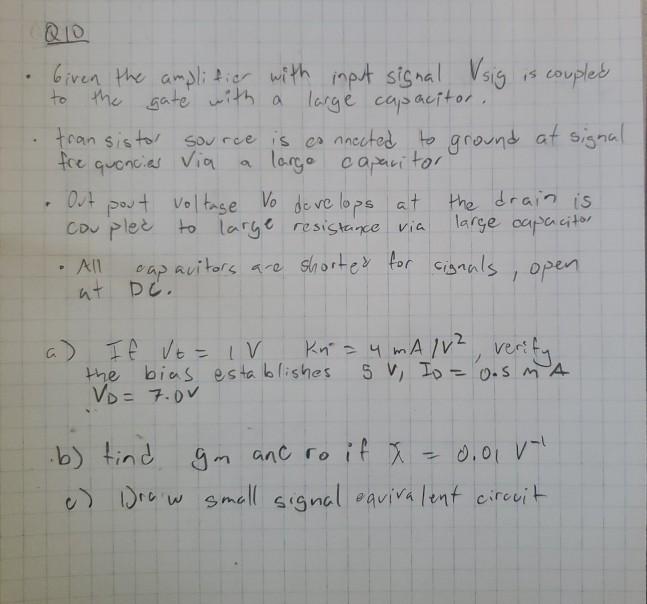 Q10
• Given the amplifier with input signal Vsig is coupled
to the gate with a large capacitor.
• transistor source is connected to ground at signal
frequencies via a large capacitor
• Out pout voltage Vo develops at the drain is
coupled to large resistance via large capacitor
• All capacitors are shorted for signals, open
at DC.
a) If Vt = 1 V Kn = 4 mA/V², verify
the bias establishes 5 V, ID = 0.5 mA
VD = 7.0V
b) find gm and ro if λ = 0.01 V⁻¹
c) Draw small signal equivalent circuit